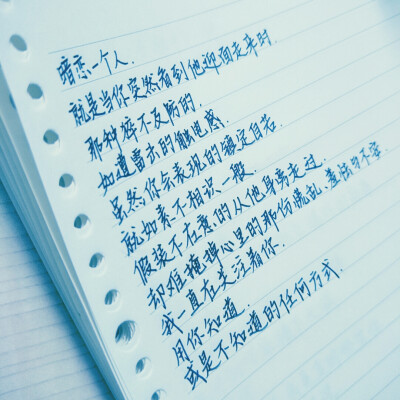 暗恋一个人.
就是当你突然看到他迎面走来时.
那种猝不及防的.
如遭雷击的触电感.
虽然你会表现的镇定自若.
就如素不相识一般.
假装不在意的从他身旁走过.
却难掩心里的那份慌乱.与不安.
我一直在关注着你.
用你知道.
或是不知道的任何方式.